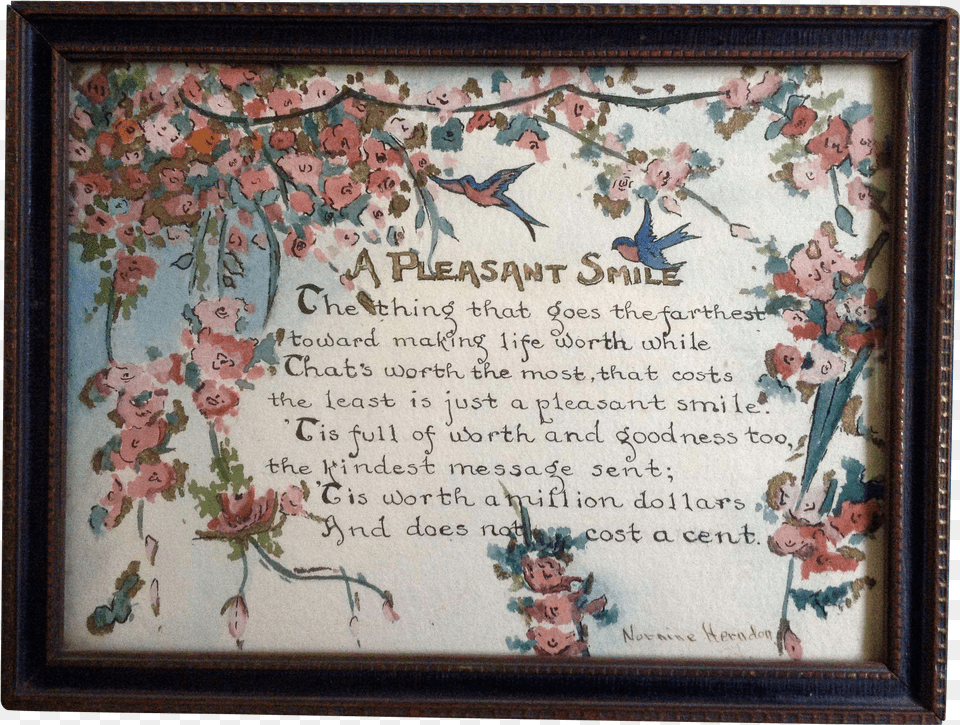 A PLEASANT SMILE
The thing that goes the farthest
toward making life worth while
That's worth the most, that costs
the least is just a pleasant smile.
'Tis full of worth and goodness too,
the kindest message sent;
'Tis worth a million dollars
And does not cost a cent.
Normine Herndon